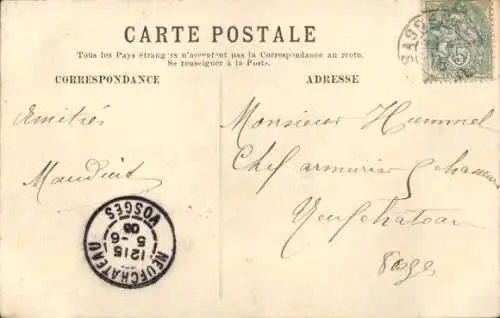 CARTE POSTALE
Tous les Pays étrangers n'acceptent pas la Correspondance au recto.
Se renseigner à la Poste.
CORRESPONDANCE
ADRESSE
Amitiés
Monsieur Hummel
Chef armurier 5 chasseurs
Neufchateau
Vosges
NEUFCHATEAU
12 15
5 - 6
VOSGES
5